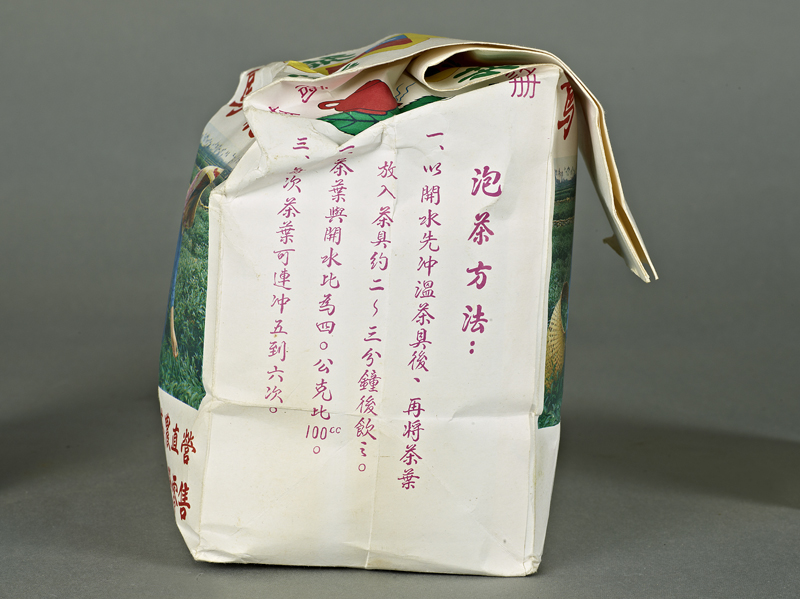 泡茶方法：
一、以開水先沖溫茶具後、再將茶葉
放入茶具約二～三分鐘後飲之。
茶葉與開水比為四。公克比100cc。
三、次茶葉可連沖五到六次。
冊
農直營
售